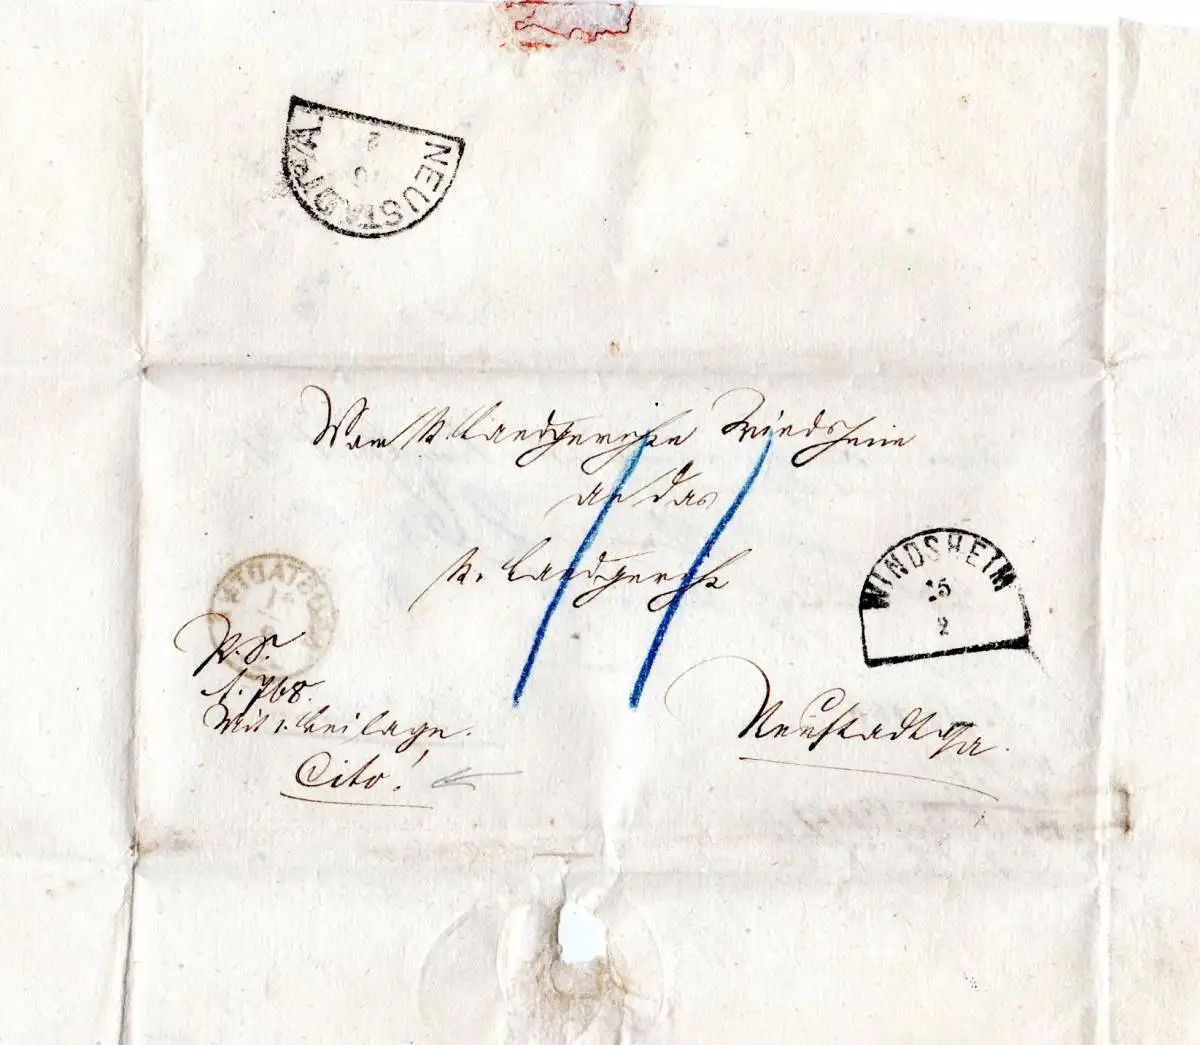 NEUSTADT a/A.
Vom K. Landgerichte Windsheim
an das
K. Landgericht
WINDSHEIM
15
2
P. S.
N. 768.
Mit 1 Beilage.
Cito!
Neustadt a/A.